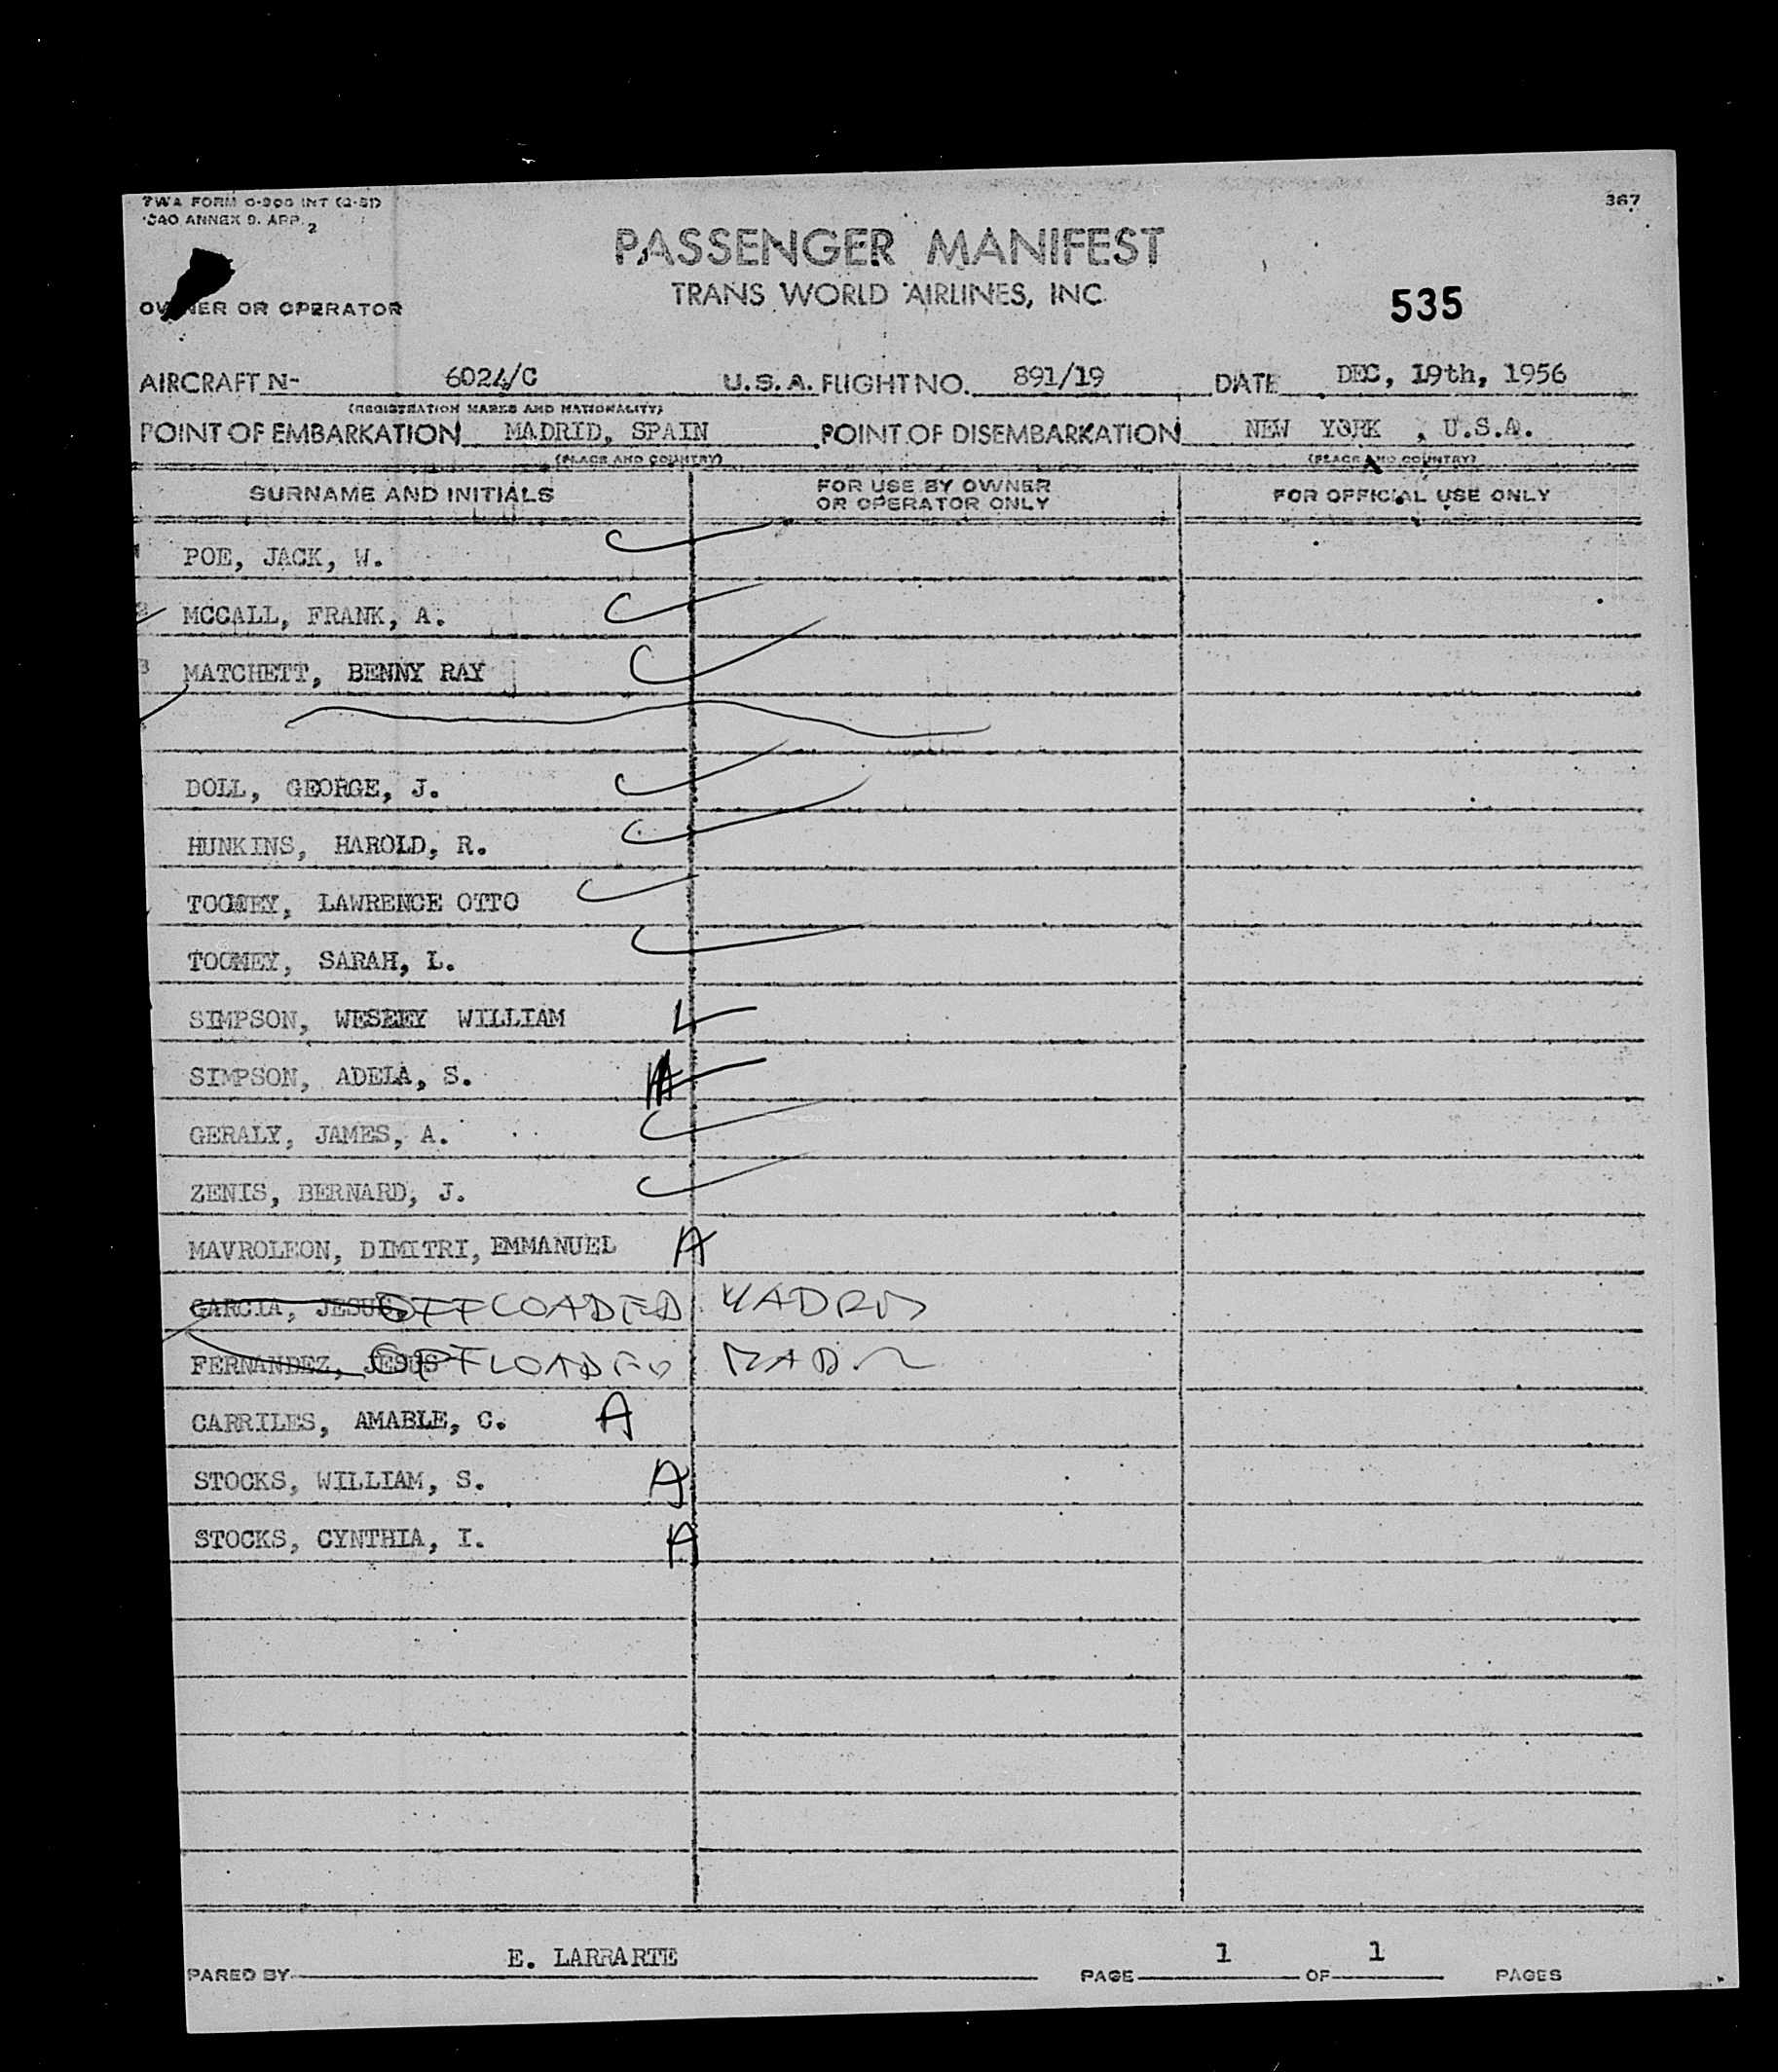 TWA FORM O-900 INT (2-51)
ICAO ANNEX 9. APP. 2
367
PASSENGER MANIFEST
TRANS WORLD AIRLINES, INC.
535
OWNER OR OPERATOR
AIRCRAFT N- 6024/C U.S.A. FLIGHT NO. 891/19 DATE DEC, 19th, 1956
(REGISTRATION MARKS AND NATIONALITY)
POINT OF EMBARKATION MADRID, SPAIN POINT OF DISEMBARKATION NEW YORK , U.S.A.
(PLACE AND COUNTRY) (PLACE AND COUNTRY)
SURNAME AND INITIALS FOR USE BY OWNER OR OPERATOR ONLY FOR OFFICIAL USE ONLY
POE, JACK, W.
2 MCCALL, FRANK, A.
3 MATCHETT, BENNY RAY
DOLL, GEORGE, J.
HUNKINS, HAROLD, R.
TOOMEY, LAWRENCE OTTO
TOOMEY, SARAH, L.
SIMPSON, WESLEY WILLIAM
SIMPSON, ADELA, S.
GERALY, JAMES, A.
ZENIS, BERNARD, J.
MAVROLEON, DIMITRI, EMMANUEL A
GARCIA, JESUS OFFLOADED MADRID
FERNANDEZ, JESUS OFFLOADED MAD
CARRILES, AMABLE, C. A
STOCKS, WILLIAM, S. A
STOCKS, CYNTHIA, I. A
PARED BY E. LARRARTE PAGE 1 OF 1 PAGES